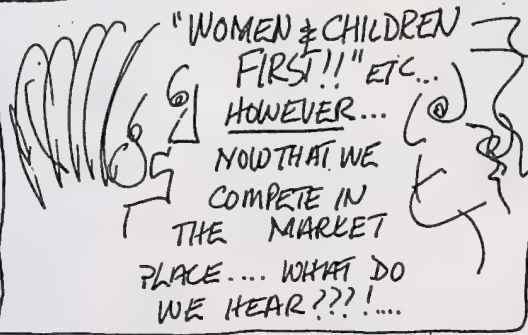 "WOMEN & CHILDREN
FIRST!!" ETC...
HOWEVER...
NOW THAT WE
COMPETE IN
THE MARKET
PLACE.... WHAT DO
WE HEAR???!....